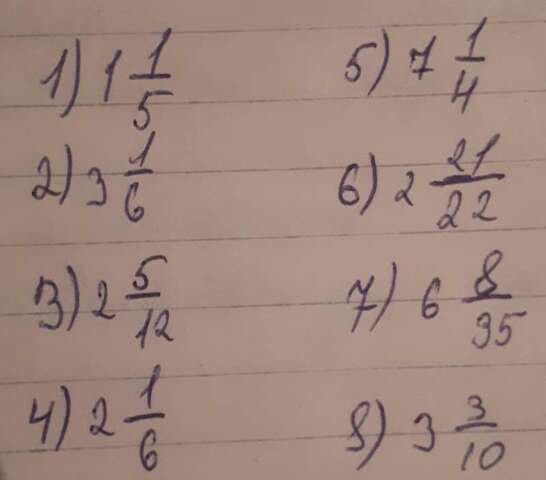 1) 1 1/5
2) 3 1/6
3) 2 5/12
4) 2 1/6
5) 7 1/4
6) 2 21/22
7) 6 8/35
8) 3 3/10